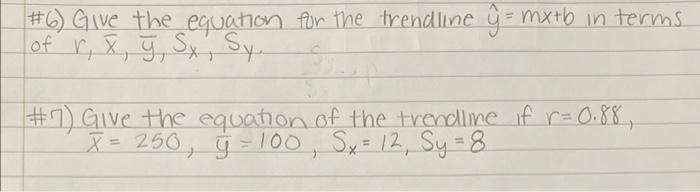 #6) Give the equation for the trendline ŷ = mx+b in terms
of r, x̄, ȳ, Sx, Sy.
#7) Give the equation of the trendline if r=0.88,
x̄ = 250, ȳ = 100, Sx = 12, Sy = 8